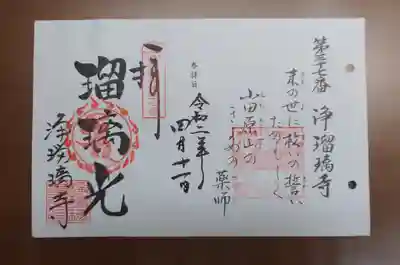 第三十七番 浄瑠璃寺
末の世に救いの誓い
たのもしく
小田原山の
薬師
参拝日
令和二年
四月十一日
拝
瑠璃光
浄瑠璃寺